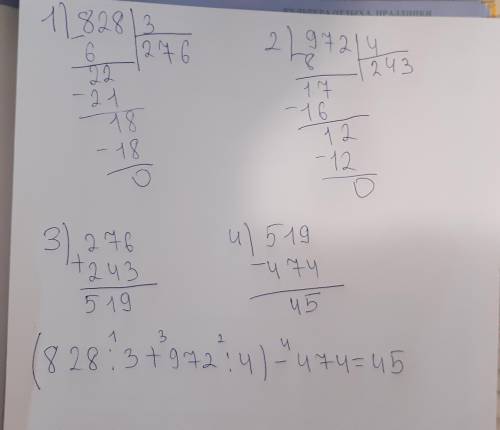 1) 828 | 3
- 6 276
22
- 21
18
- 18
0
2) 972 | 4
- 8 243
17
- 16
12
- 12
0
3) 276
+ 243
519
4) 519
- 474
45
(828 :¹ 3 +³ 972 :² 4) -⁴ 474 = 45